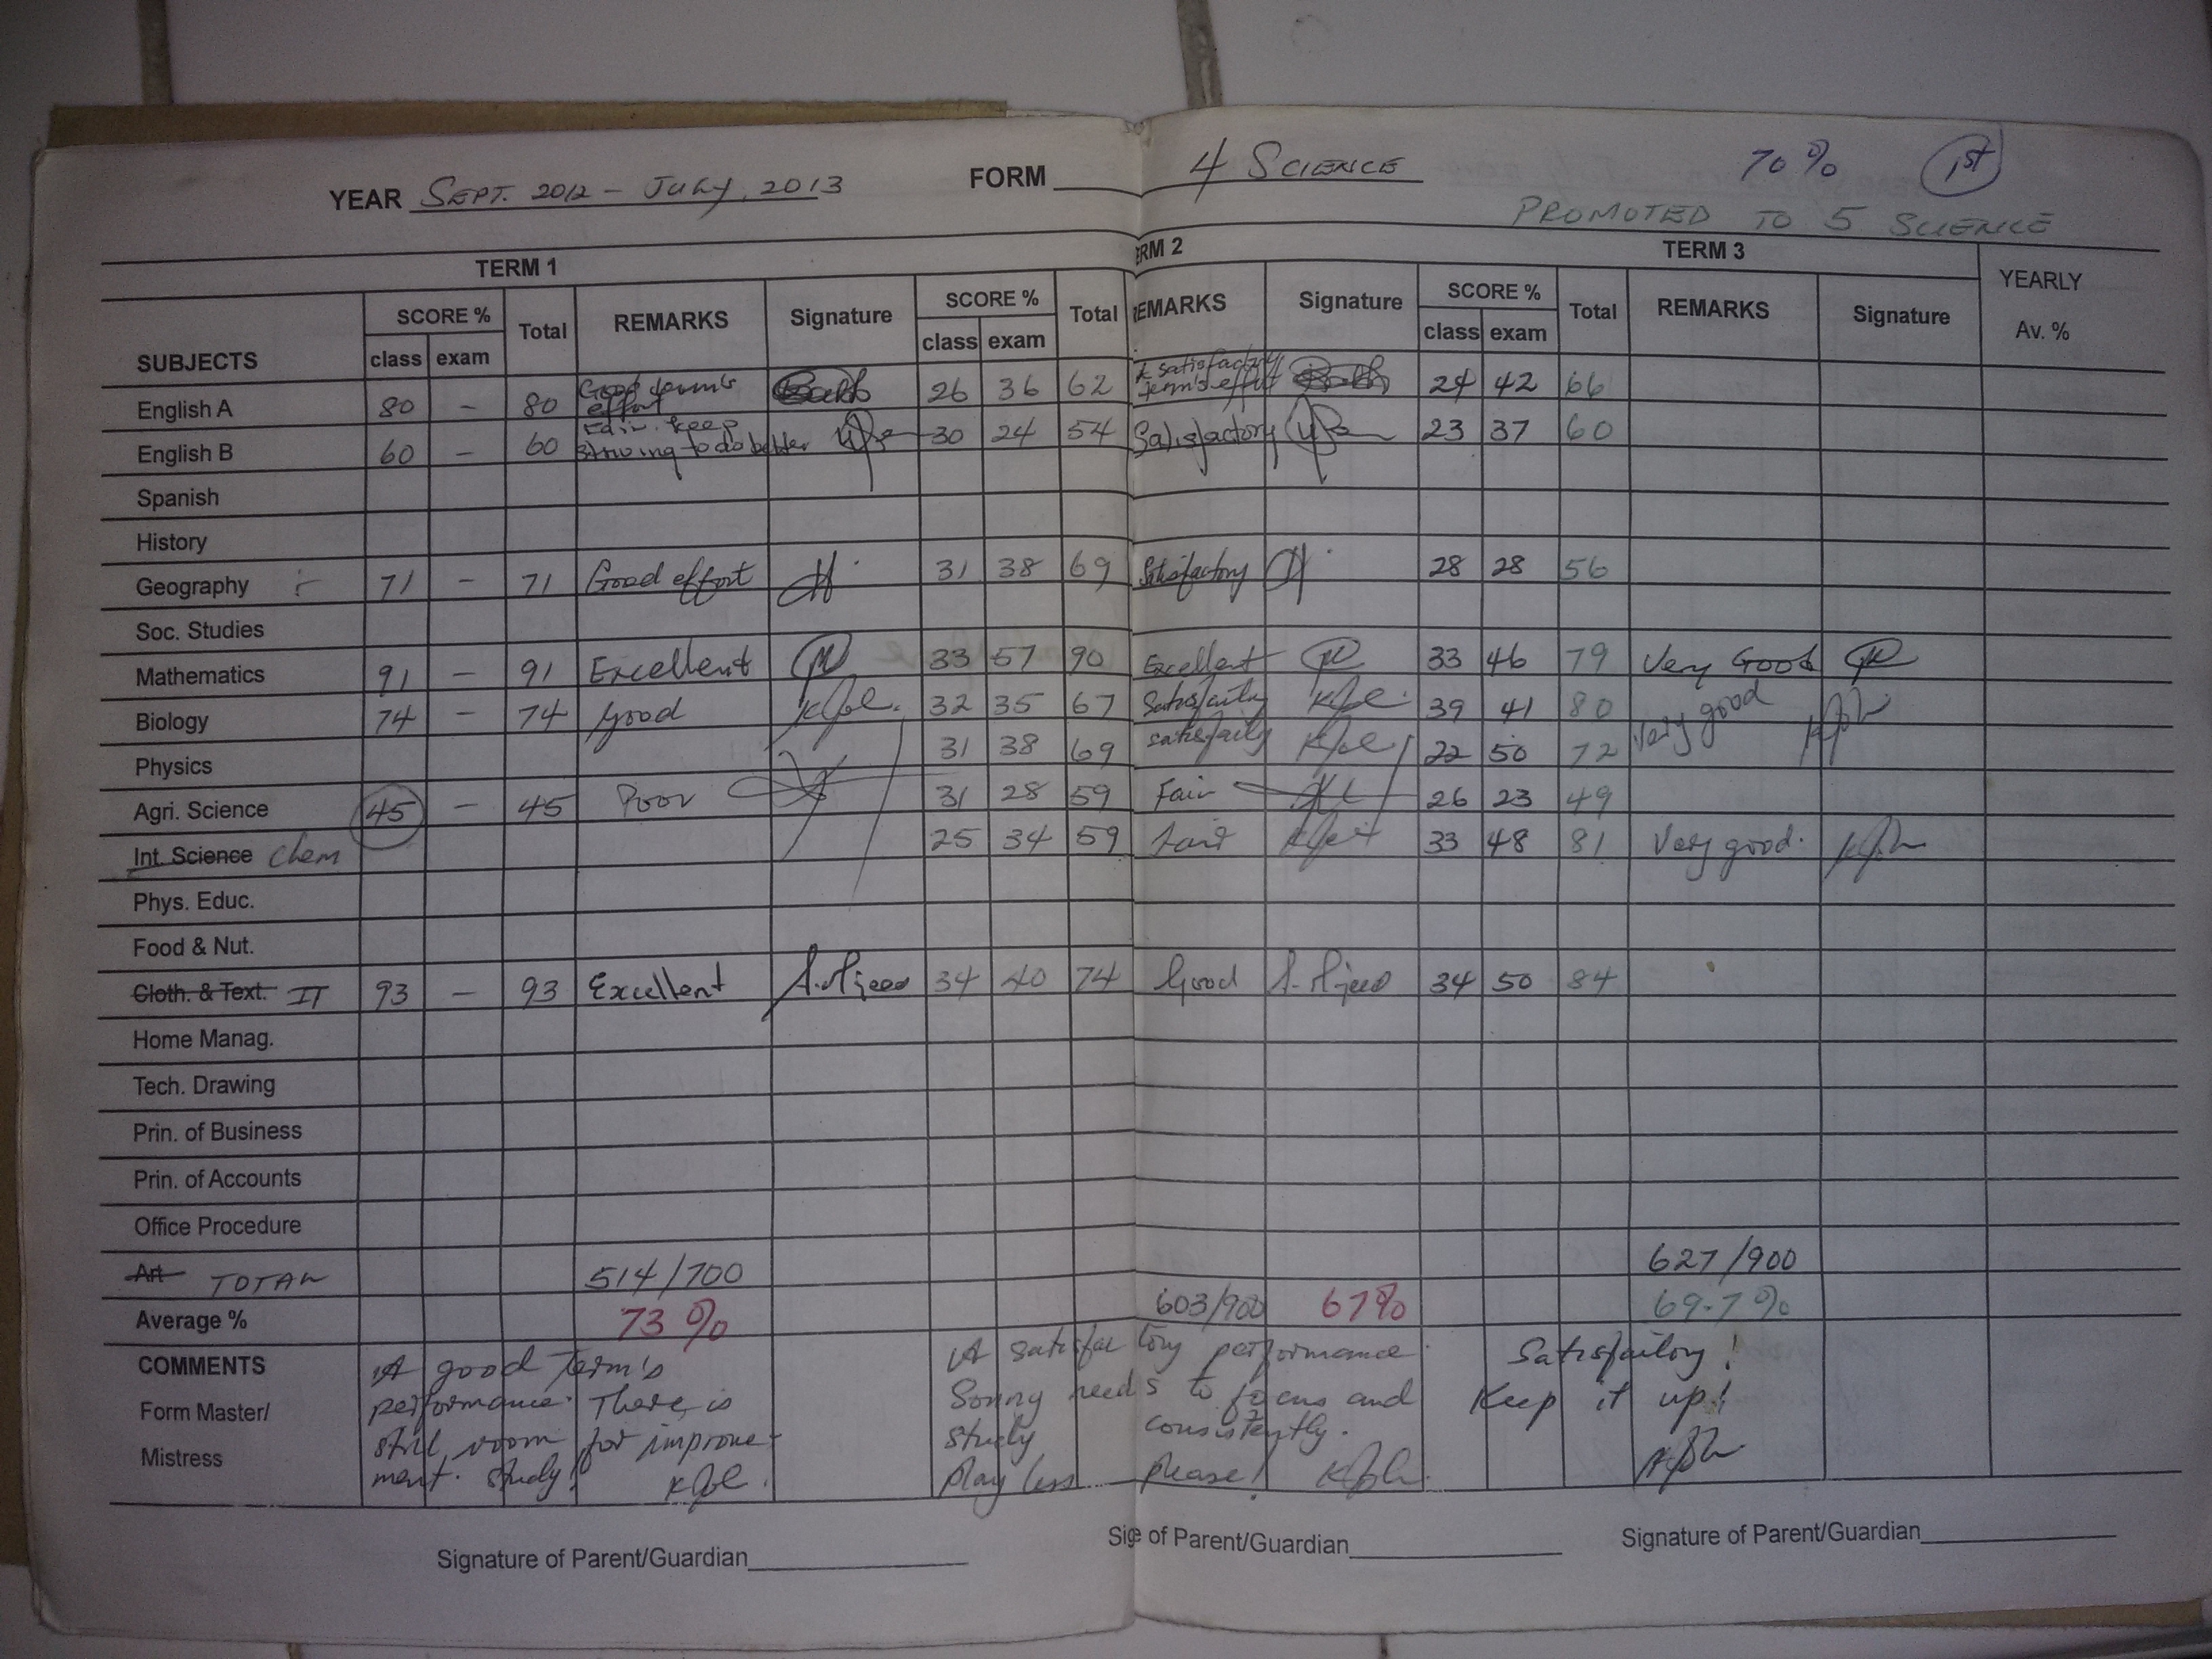 YEAR SEPT. 2012 - JULY, 2013 FORM 4 SCIENCE 70% 1st
PROMOTED TO 5 SCIENCE
TERM 1 TERM 2 TERM 3 YEARLY
SUBJECTS SCORE % Total REMARKS Signature SCORE % Total REMARKS Signature SCORE % Total REMARKS Signature Av. %
class exam class exam class exam
English A 80 - 80 Good term's effort 26 36 62 A satisfactory term's effort 24 42 66
English B 60 - 60 Fair. Keep striving to do better 30 24 54 Satisfactory 23 37 60
Spanish
History
Geography 71 - 71 Good effort 31 38 69 Satisfactory 28 28 56
Soc. Studies
Mathematics 91 - 91 Excellent 33 57 90 Excellent 33 46 79 Very Good
Biology 74 - 74 Good 32 35 67 Satisfactory 39 41 80 Very good
Physics 31 38 69 Satisfactory 22 50 72
Agri. Science 45 - 45 Poor 31 28 59 Fair 26 23 49
Int. Science Chem 25 34 59 Fair 33 48 81 Very good.
Phys. Educ.
Food & Nut.
Cloth. & Text. IT 93 - 93 Excellent 34 40 74 Good 34 50 84
Home Manag.
Tech. Drawing
Prin. of Business
Prin. of Accounts
Office Procedure
Art TOTAL 514/700 627/900
Average % 73% 603/900 67% 69.7%
COMMENTS
Form Master/
Mistress
A good term's
performance. There is
still room for improve-
ment. Study!
A satisfactory performance.
Sonny needs to focus and
study consistently.
Play less please!
Satisfactory!
Keep it up!
Signature of Parent/Guardian
Sig of Parent/Guardian
Signature of Parent/Guardian